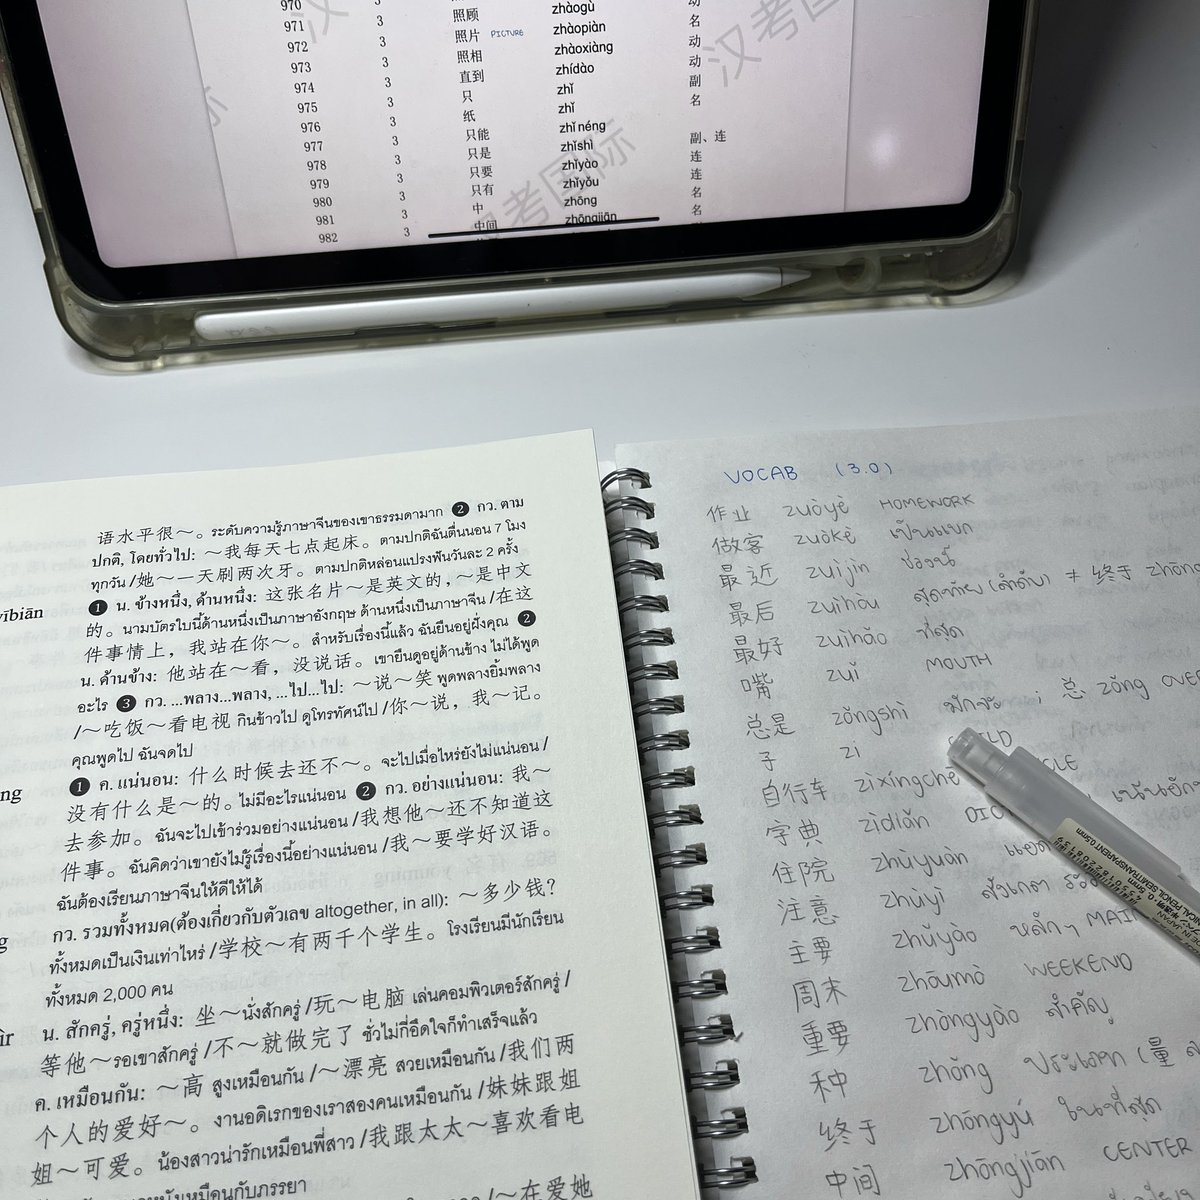 970 3 照顾 zhàogù 动
971 3 照片 PICTURE zhàopiàn 名
972 3 照相 zhàoxiàng 动
973 3 直到 zhídào 动
974 3 只 zhǐ 副
975 3 纸 zhǐ 名
976 3 只能 zhǐ néng
977 3 只是 zhǐshì 副、连
978 3 只要 zhǐyào 连
979 3 只有 zhǐyǒu 连
980 3 中 zhōng 名
981 3 中间 zhōngjiān 名
982 3
汉考国际
语水平很～。ระดับความรู้ภาษาจีนของเขาธรรมดามาก ❷ กว. ตาม
ปกติ, โดยทั่วไป: ～我每天七点起床。ตามปกติฉันตื่นนอน 7 โมง
ทุกวัน /她～一天刷两次牙。ตามปกติหล่อนแปรงฟันวันละ 2 ครั้ง
yìbiān ❶ น. ข้างหนึ่ง, ด้านหนึ่ง: 这张名片～是英文的，～是中文
的。นามบัตรใบนี้ด้านหนึ่งเป็นภาษาอังกฤษ ด้านหนึ่งเป็นภาษาจีน /在这
件事情上，我站在你～。สำหรับเรื่องนี้แล้ว ฉันยืนอยู่ฝั่งคุณ ❷
น. ด้านข้าง: 他站在～看，没说话。เขายืนดูอยู่ด้านข้าง ไม่ได้พูด
อะไร ❸ กว. ...พลาง...พลาง, ...ไป...ไป: ～说～笑 พูดพลางยิ้มพลาง
/～吃饭～看电视 กินข้าวไป ดูโทรทัศน์ไป /你～说，我～记。
คุณพูดไป ฉันจดไป
❶ ค. แน่นอน: 什么时候去还不～。จะไปเมื่อไหร่ยังไม่แน่นอน /
没有什么是～的。ไม่มีอะไรแน่นอน ❷ กว. อย่างแน่นอน: 我～
去参加。ฉันจะไปเข้าร่วมอย่างแน่นอน /我想他～还不知道这
件事。ฉันคิดว่าเขายังไม่รู้เรื่องนี้อย่างแน่นอน /我～要学好汉语。
ฉันต้องเรียนภาษาจีนให้ดีให้ได้
กว. รวมทั้งหมด(ต้องเกี่ยวกับตัวเลข altogether, in all): ～多少钱?
ทั้งหมดเป็นเงินเท่าไหร่ /学校～有两千个学生。โรงเรียนมีนักเรียน
ทั้งหมด 2,000 คน
น. สักครู่, ครู่หนึ่ง: 坐～นั่งสักครู่ /玩～电脑 เล่นคอมพิวเตอร์สักครู่ /
等他～รอเขาสักครู่ /不～就做完了 ชั่วไม่กี่อึดใจก็ทำเสร็จแล้ว
ค. เหมือนกัน: ～高 สูงเหมือนกัน /～漂亮 สวยเหมือนกัน /我们两
个人的爱好～。งานอดิเรกของเราสองคนเหมือนกัน /妹妹跟姐
姐～可爱。น้องสาวน่ารักเหมือนพี่สาว /我跟太太～喜欢看电
เหมือนกับภรรยา
/～在爱她
VOCAB (3.0)
作业 zuòyè HOMEWORK
做客 zuòkè เป็นแขก
最近 zuìjìn ช่วงนี้
最后 zuìhòu สุดท้าย (ลำดับ) ≠ 终于 zhōng
最好 zuìhǎo ที่สุด
嘴 zuǐ MOUTH
总是 zǒngshì มักจะ ; 总 zǒng OVER
子 zǐ
自行车 zìxíngchē
字典 zìdiǎn
住院 zhùyuàn
注意 zhùyì
主要 zhǔyào หลักๆ MAIN
周末 zhōumò WEEKEND
重要 zhòngyào สำคัญ
种 zhǒng ประเภท (量
终于 zhōngyú ในที่สุด
中间 zhōngjiān CENTER
0.5mm